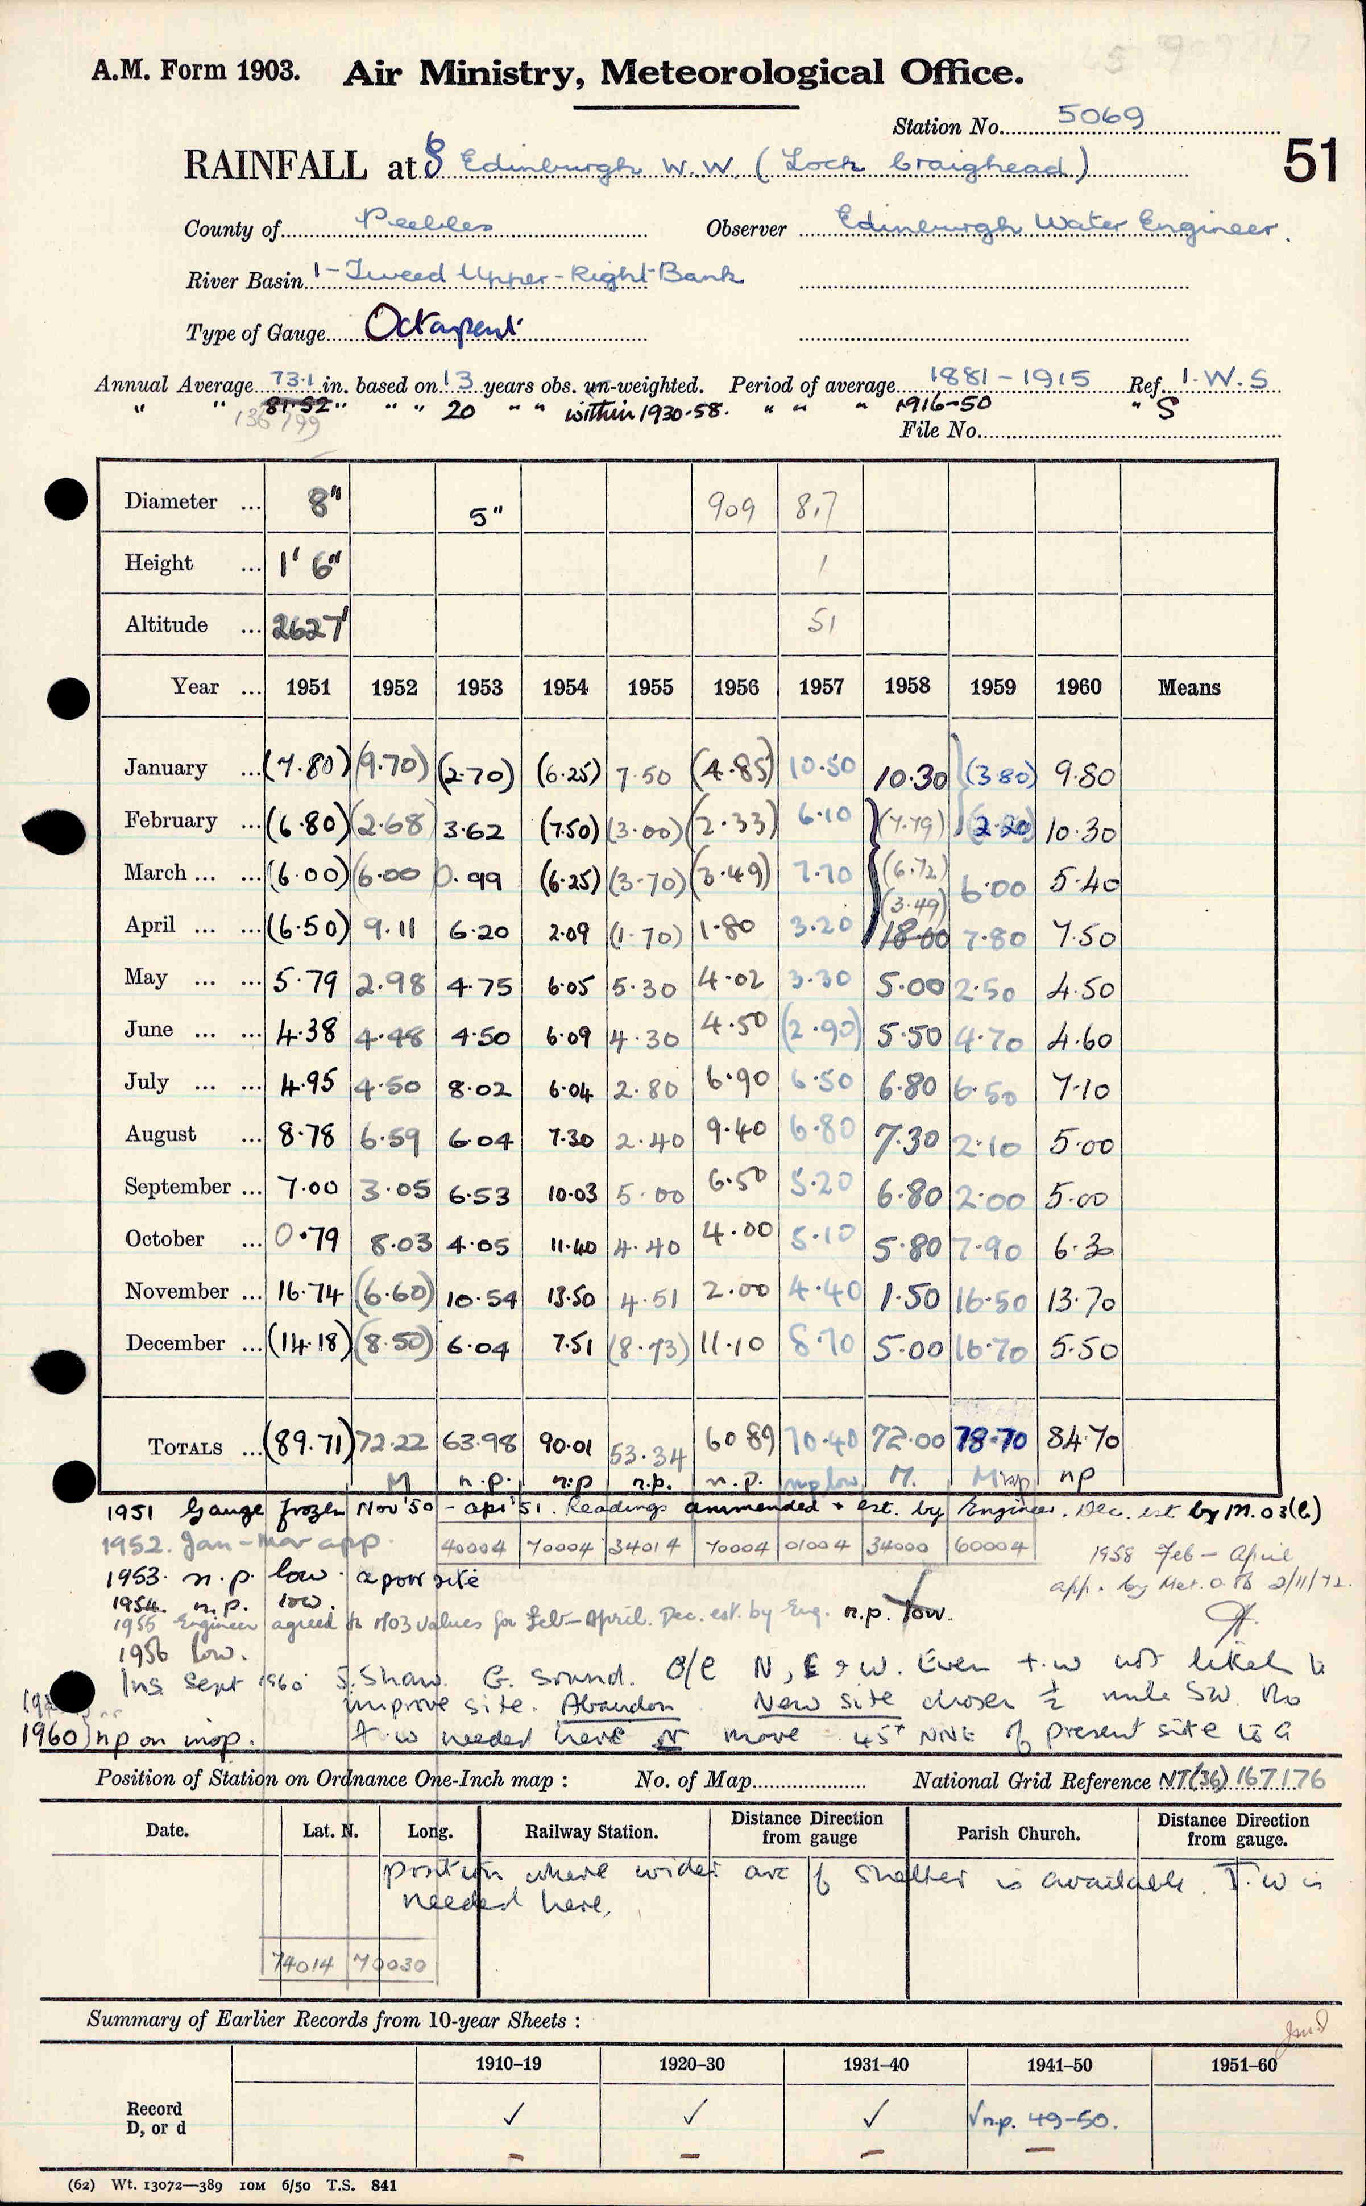 A.M. Form 1903. Air Ministry, Meteorological Office.
Station No. 5069
RAINFALL at § Edinburgh W.W. (Loch Craighead)
51
County of Peebles Observer Edinburgh Water Engineer.
River Basin 1 - Tweed Upper - Right Bank
Type of Gauge Octapent
Annual Average 73.1 in. based on 13 years obs. un-weighted. Period of average 1881-1915 Ref. I.W.S
" " 81.52 " " " 20 " " within 1930-58. " " " 1916-50 " S
136799
File No.
Diameter ... 8" 5" 909 8,7
Height ... 1' 6" 1
Altitude ... 2627' 51
Year ... 1951 1952 1953 1954 1955 1956 1957 1958 1959 1960 Means
January ... (7.80) (9.70) (2.70) (6.25) 7.50 (4.85) 10.50 10.30 (3.80) 9.80
February ... (6.80) (2.68) 3.62 (7.50) (3.00) (2.33) 6.10 (7.79) (2.20) 10.30
March ... ... (6.00) (6.00) 0.99 (6.25) (3.70) (3.49) 7.70 (6.72) 6.00 5.40
April ... ... (6.50) 9.11 6.20 2.09 (1.70) 1.80 3.20 (3.49) 18.00 7.80 7.50
May ... ... 5.79 2.98 4.75 6.05 5.30 4.02 3.30 5.00 2.50 4.50
June ... ... 4.38 4.48 4.50 6.09 4.30 4.50 (2.90) 5.50 4.70 4.60
July ... ... 4.95 4.50 8.02 6.04 2.80 6.90 6.50 6.80 6.50 7.10
August ... 8.78 6.59 6.04 7.30 2.40 9.40 6.80 7.30 2.10 5.00
September ... 7.00 3.05 6.53 10.03 5.00 6.50 5.20 6.80 2.00 5.00
October ... 0.79 8.03 4.05 11.40 4.40 4.00 5.10 5.80 7.90 6.30
November ... 16.74 (6.60) 10.54 13.50 4.51 2.00 4.40 1.50 16.50 13.70
December ... (14.18) (8.50) 6.04 7.51 (8.73) 11.10 8.70 5.00 16.70 5.50
TOTALS ... (89.71) 72.22 63.98 90.01 53.34 60.89 70.40 72.00 78.70 84.70
M n.p. n.p n.p. n.p. np low M. M np np
1951 Gauge frozen Nov '50 - apr '51. Readings ammended + est. by Engineer. Dec. est by M.O3(b)
1952. Jan - Mar app. 40004 70004 34014 70004 01004 34000 60004
1958 Feb - April
app. by Met. O. 8b 2/11/72.
1953. n.p. low. a poor site
1954. n.p. low.
1955 Engineer agreed to MO3 values for Feb-April. Dec. est. by Eng. n.p. low.
1956 low.
Ins Sept 1960 S. Shaw. G. sound. O/e N, E & W. Even t.w not likely to
improve site. Abandon. New site chosen ½ mile SW. No
1960} np on insp. t w needed here or move 45' NNE of present site to a
Position of Station on Ordnance One-Inch map : No. of Map National Grid Reference NT(36) 167176
Date. Lat. N. Long. Railway Station. Distance Direction from gauge Parish Church. Distance Direction from gauge.
position where wider arc of shelter is available. T.w is
needed here.
74014 70030
Summary of Earlier Records from 10-year Sheets :
1910–19 1920–30 1931–40 1941–50 1951–60
Record
D, or d
✓ ✓ ✓ √n.p. 49-50.
(62) Wt. 13072—389 10M 6/50 T.S. 841